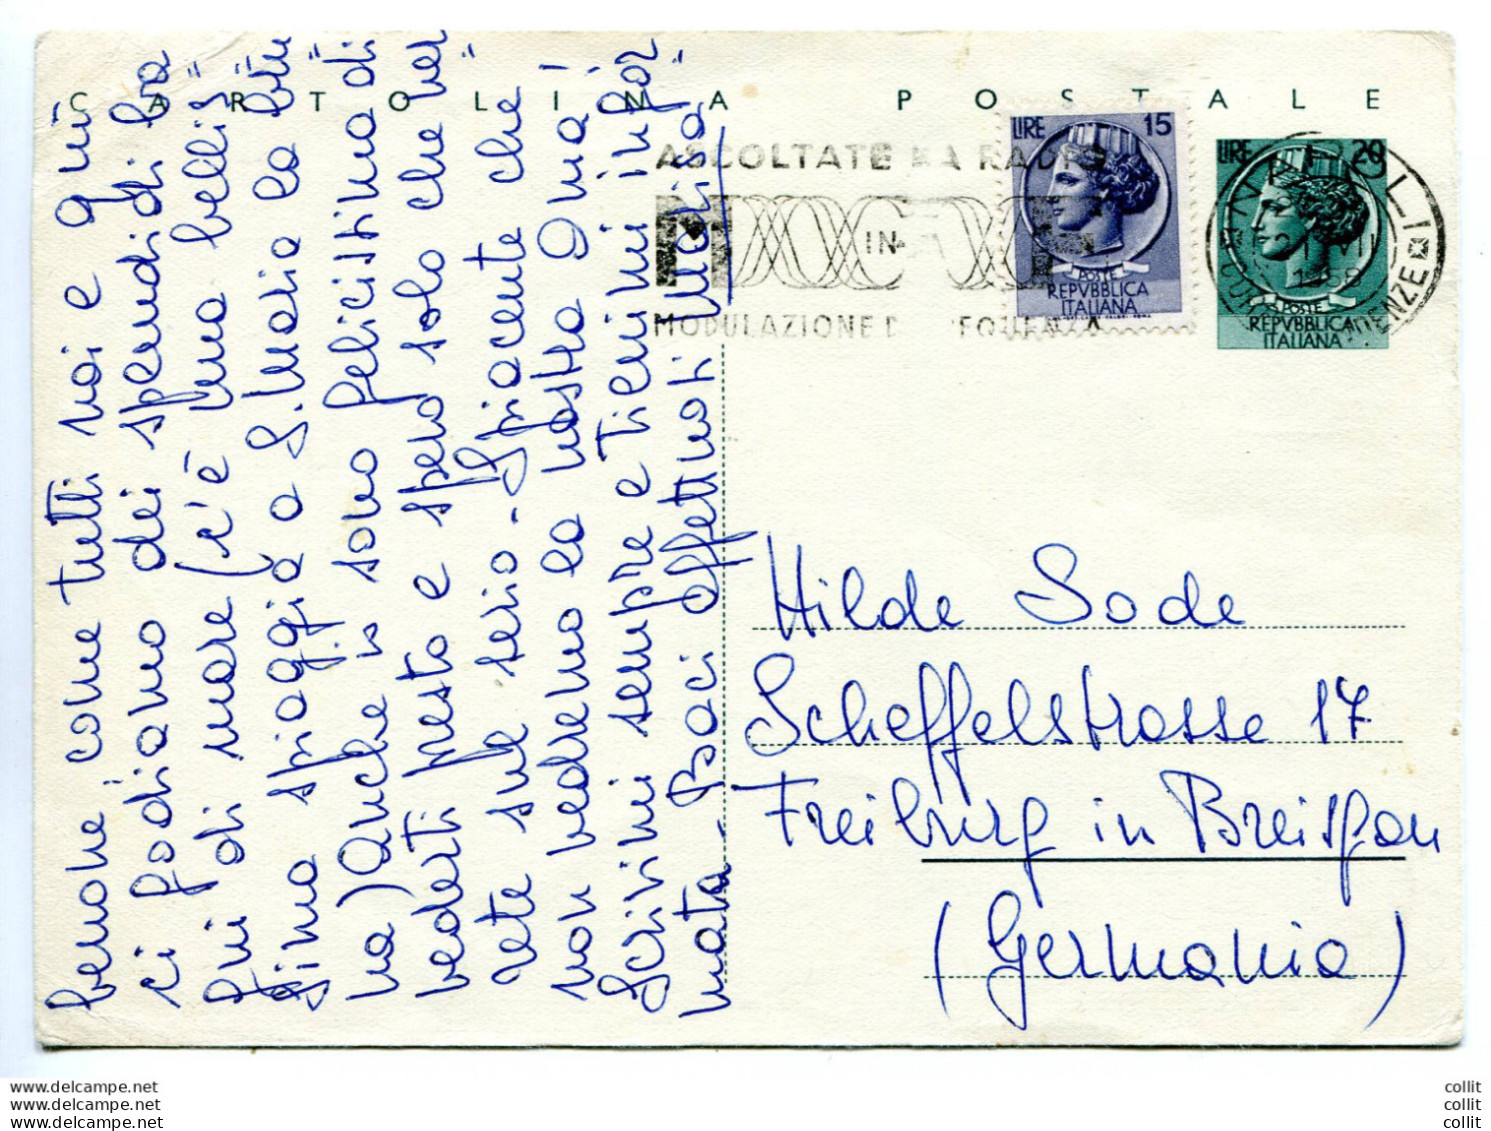 CARTOLINA POSTALE
ASCOLTATE LA RADIO
IN
MODULAZIONE DI FREQUENZA
LIRE 15
POSTE
REPVBBLICA
ITALIANA
LIRE 20
POSTE
REPVBBLICA
ITALIANA
NAPOLI
1958
benone come tutti noi e qui
ci godiamo dei splendidi ba
gni di mare (c'è una bellis=
sima spiaggia a S. Maria la bru=
na) Anche io sono felicissima di
vederti presto e spero solo che ver=
rete sul serio - Spiacente che
non vedremo la nostra Omai
Scrivimi sempre e tienimi infor=
mata - Baci affettuosi Marisa
Hilde Sode
Scheffelstrasse 17
Freiburg in Breisgau
(Germania)
www.delcampe.net
www.delcampe.net
www.delcampe.net
collit
collit
collit